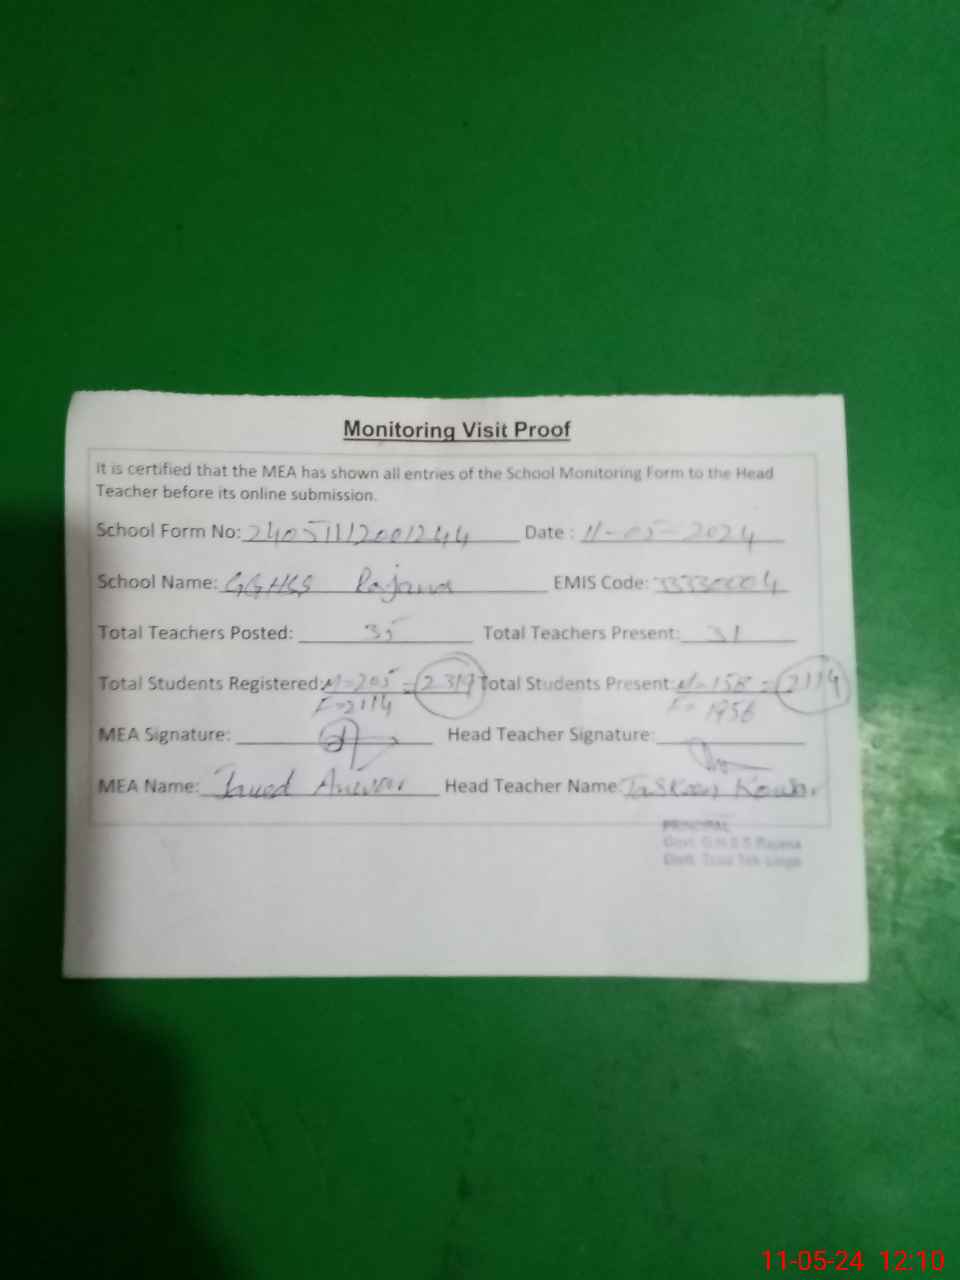 Monitoring Visit Proof
It is certified that the MEA has shown all entries of the School Monitoring Form to the Head
Teacher before its online submission.
School Form No: 24051112001244 Date : 11-05-2024
School Name: GGHSS Rajana EMIS Code: 33330004
Total Teachers Posted: 35 Total Teachers Present: 31
Total Students Registered: M=205 = 2319 Total Students Present: M=158 = 2114
F=2114 F=1956
MEA Signature: Head Teacher Signature:
MEA Name: Head Teacher Name:
PRINCIPAL
Govt. G.H.S.S Rajana
11-05-24 12:10